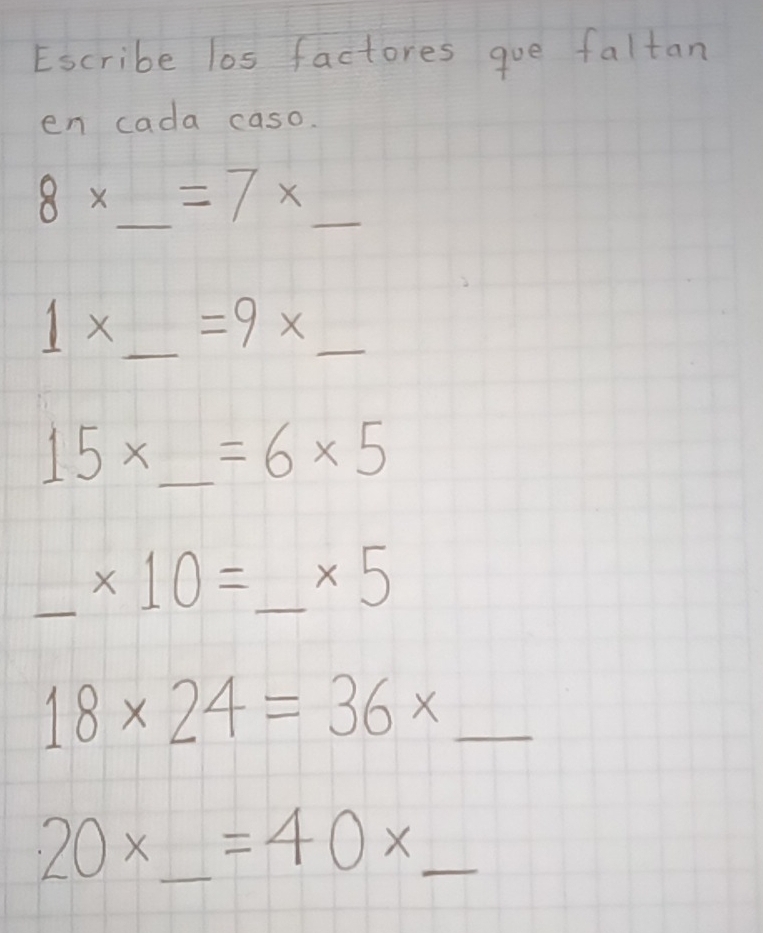 Escribe los factores que faltan
en cada caso.
8 × _ = 7 × _
1 × _ = 9 × _
15 × _ = 6 × 5
_ × 10 = _ × 5
18 × 24 = 36 × _
20 × _ = 40 × _